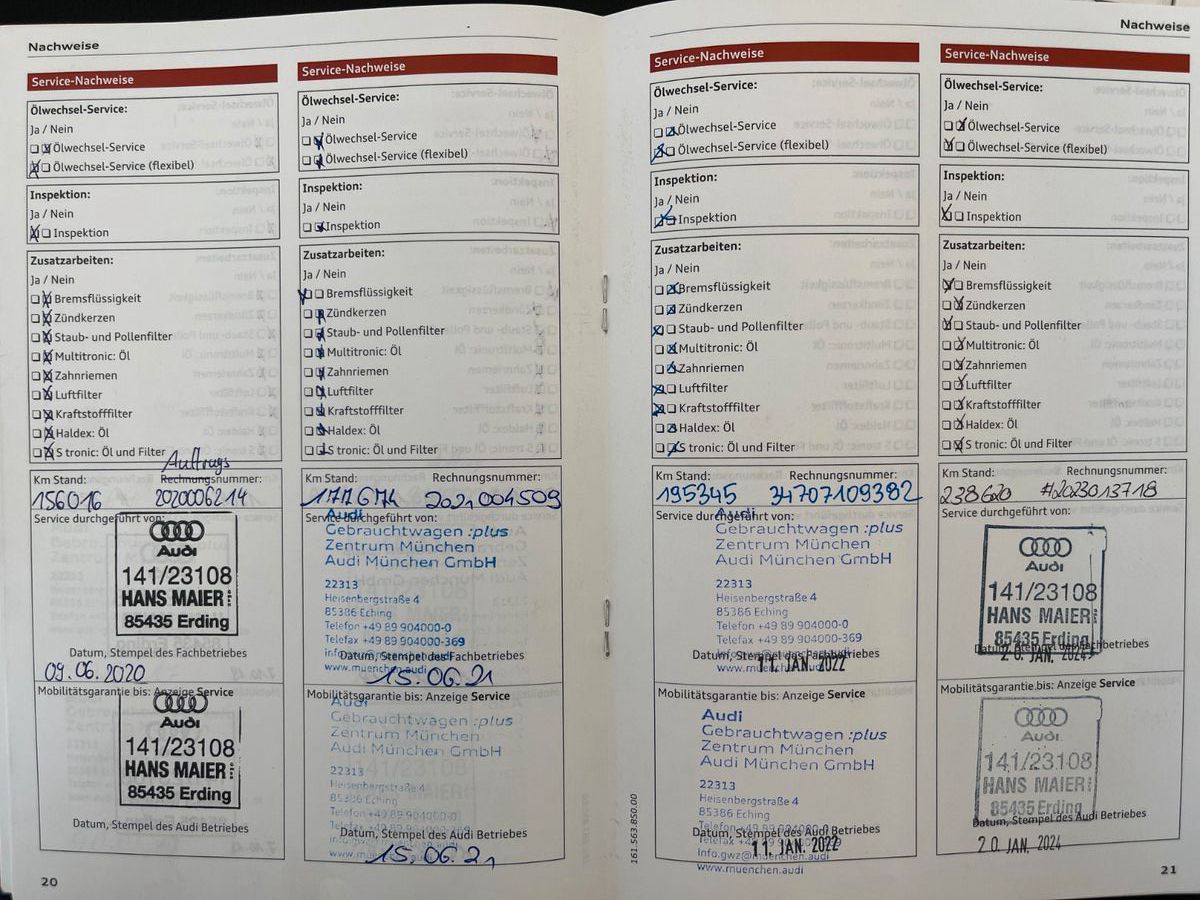 Nachweise
Service-Nachweise
Ölwechsel-Service:
Ja / Nein
Ölwechsel-Service
Ölwechsel-Service (flexibel)
Inspektion:
Ja / Nein
Inspektion
Zusatzarbeiten:
Ja / Nein
Bremsflüssigkeit
Zündkerzen
Staub- und Pollenfilter
Multitronic: Öl
Zahnriemen
Luftfilter
Kraftstofffilter
Haldex: Öl
S tronic: Öl und Filter
Auftrags
Km Stand: Rechnungsnummer:
156016 2020006214
Service durchgeführt von:
Audi
141/23108
HANS MAIER
85435 Erding
Datum, Stempel des Fachbetriebes
09.06.2020
Mobilitätsgarantie bis: Anzeige Service
Audi
141/23108
HANS MAIER
85435 Erding
Datum, Stempel des Audi Betriebes
20
Service-Nachweise
Ölwechsel-Service:
Ja / Nein
Ölwechsel-Service
Ölwechsel-Service (flexibel)
Inspektion:
Ja / Nein
Inspektion
Zusatzarbeiten:
Ja / Nein
Bremsflüssigkeit
Zündkerzen
Staub- und Pollenfilter
Multitronic: Öl
Zahnriemen
Luftfilter
Kraftstofffilter
Haldex: Öl
S tronic: Öl und Filter
Km Stand: Rechnungsnummer:
177674 2021004509
Service durchgeführt von:
Audi
Gebrauchtwagen :plus
Zentrum München
Audi München GmbH
22313
Heisenbergstraße 4
85386 Eching
Telefon +49 89 904000-0
Telefax +49 89 904000-369
Datum, Stempel des Fachbetriebes
www.muenchen.audi
15.06.21
Mobilitätsgarantie bis: Anzeige Service
Audi
Gebrauchtwagen :plus
Zentrum München
Audi München GmbH
22313
Heisenbergstraße 4
85386 Eching
Telefon +49 89 904000-0
Datum, Stempel des Audi Betriebes
15.06.21
161.563.850.00
Nachweise
Service-Nachweise
Ölwechsel-Service:
Ja / Nein
Ölwechsel-Service
Ölwechsel-Service (flexibel)
Inspektion:
Ja / Nein
Inspektion
Zusatzarbeiten:
Ja / Nein
Bremsflüssigkeit
Zündkerzen
Staub- und Pollenfilter
Multitronic: Öl
Zahnriemen
Luftfilter
Kraftstofffilter
Haldex: Öl
S tronic: Öl und Filter
Km Stand: Rechnungsnummer:
195345 34707109382
Service durchgeführt von:
Audi
Gebrauchtwagen :plus
Zentrum München
Audi München GmbH
22313
Heisenbergstraße 4
85386 Eching
Telefon +49 89 904000-0
Telefax +49 89 904000-369
Datum, Stempel des Fachbetriebes
11. JAN. 2022
www.muenchen.audi
Mobilitätsgarantie bis: Anzeige Service
Audi
Gebrauchtwagen :plus
Zentrum München
Audi München GmbH
22313
Heisenbergstraße 4
85386 Eching
Telefon +49 89 904000-0
Datum, Stempel des Audi Betriebes
11. JAN. 2022
info.gwz@muenchen.audi
www.muenchen.audi
Service-Nachweise
Ölwechsel-Service:
Ja / Nein
Ölwechsel-Service
Ölwechsel-Service (flexibel)
Inspektion:
Ja / Nein
Inspektion
Zusatzarbeiten:
Ja / Nein
Bremsflüssigkeit
Zündkerzen
Staub- und Pollenfilter
Multitronic: Öl
Zahnriemen
Luftfilter
Kraftstofffilter
Haldex: Öl
S tronic: Öl und Filter
Km Stand: Rechnungsnummer:
238620 #2023013718
Service durchgeführt von:
Audi
141/23108
HANS MAIER
85435 Erding
Datum, Stempel des Fachbetriebes
20. JAN. 2024
Mobilitätsgarantie bis: Anzeige Service
Audi
141/23108
HANS MAIER
85435 Erding
Datum, Stempel des Audi Betriebes
20. JAN. 2024
21